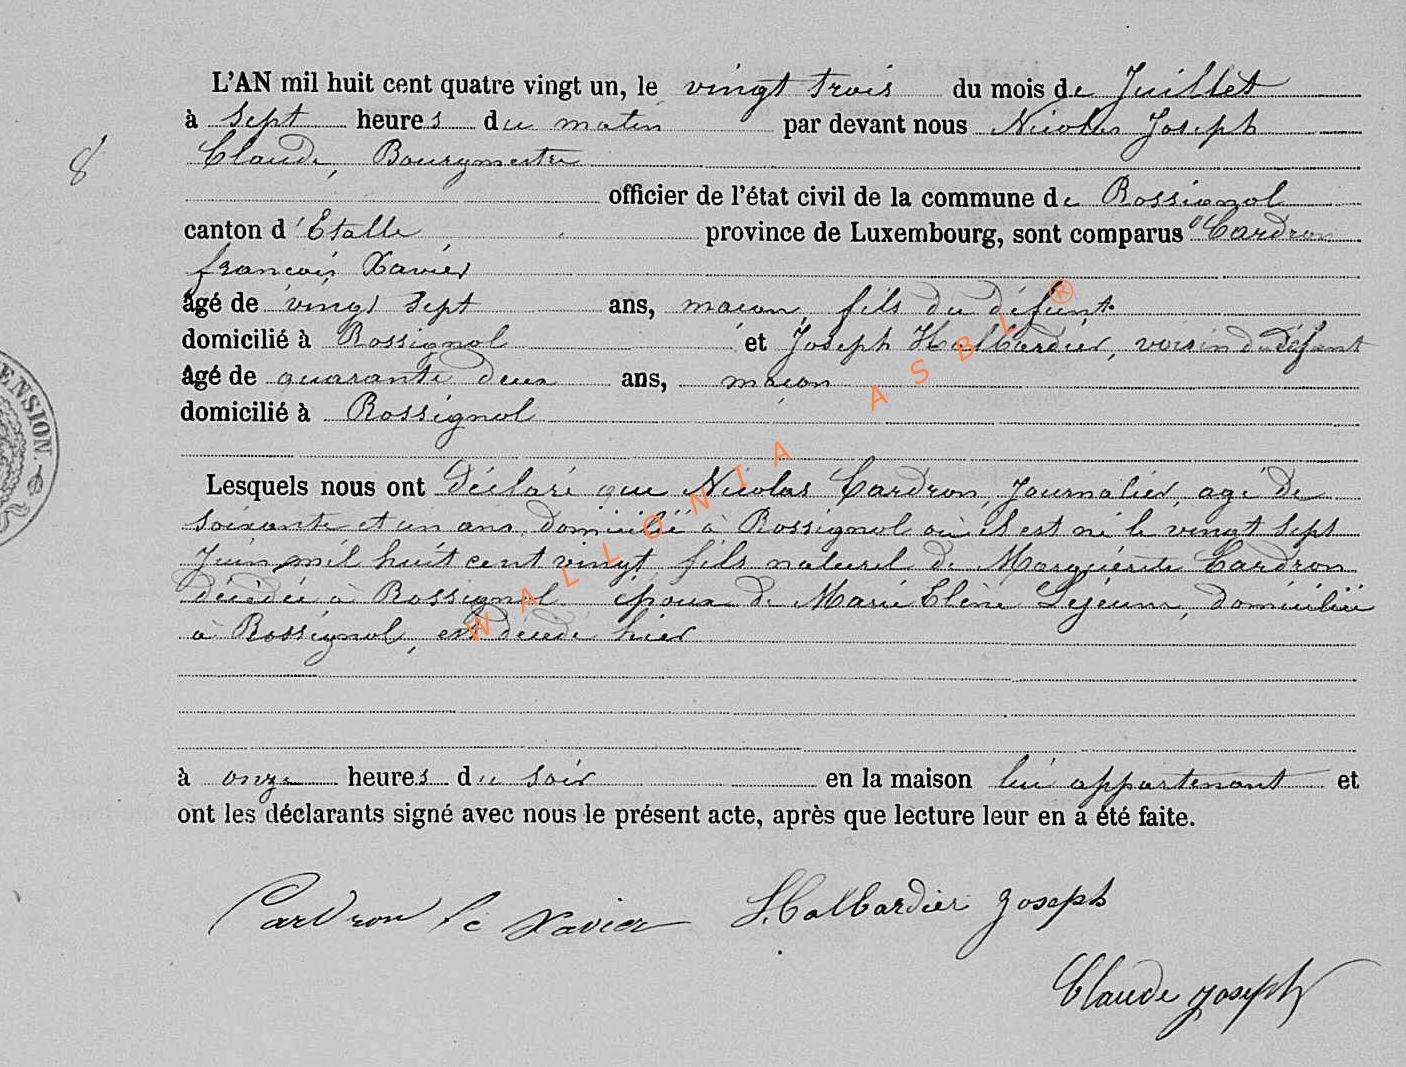 L'AN mil huit cent quatre vingt un, le vingt trois du mois de Juillet
à Sept heures du matin par devant nous Nicolas Joseph
8
Claude, Bourgmestre
officier de l'état civil de la commune de Rossignol
canton d'Etalle, province de Luxembourg, sont comparus Cardron
françois Xavier
âgé de vingt sept ans, maçon, fils du défunt
domicilié à Rossignol et Joseph Halbardier, voisin du défunt
âgé de quarante deux ans, maçon
domicilié à Rossignol
ENSION.
Lesquels nous ont déclaré que Nicolas Cardron, Journalier, agé de
soixante et un ans, domicilié à Rossignol où il est né le vingt sept
Juin mil huit cent vingt, fils naturel de Marguérite Cardron
décédée à Rossignol époux de Marie Elène Lejeune, domiciliée
à Rossignol, est décédé hier
à onze heures du soir en la maison lui appartenant et
ont les déclarants signé avec nous le présent acte, après que lecture leur en a été faite.
Cardron fc Xavier Halbardier Joseph
Claude Joseph
WALLONIA ASBL ®